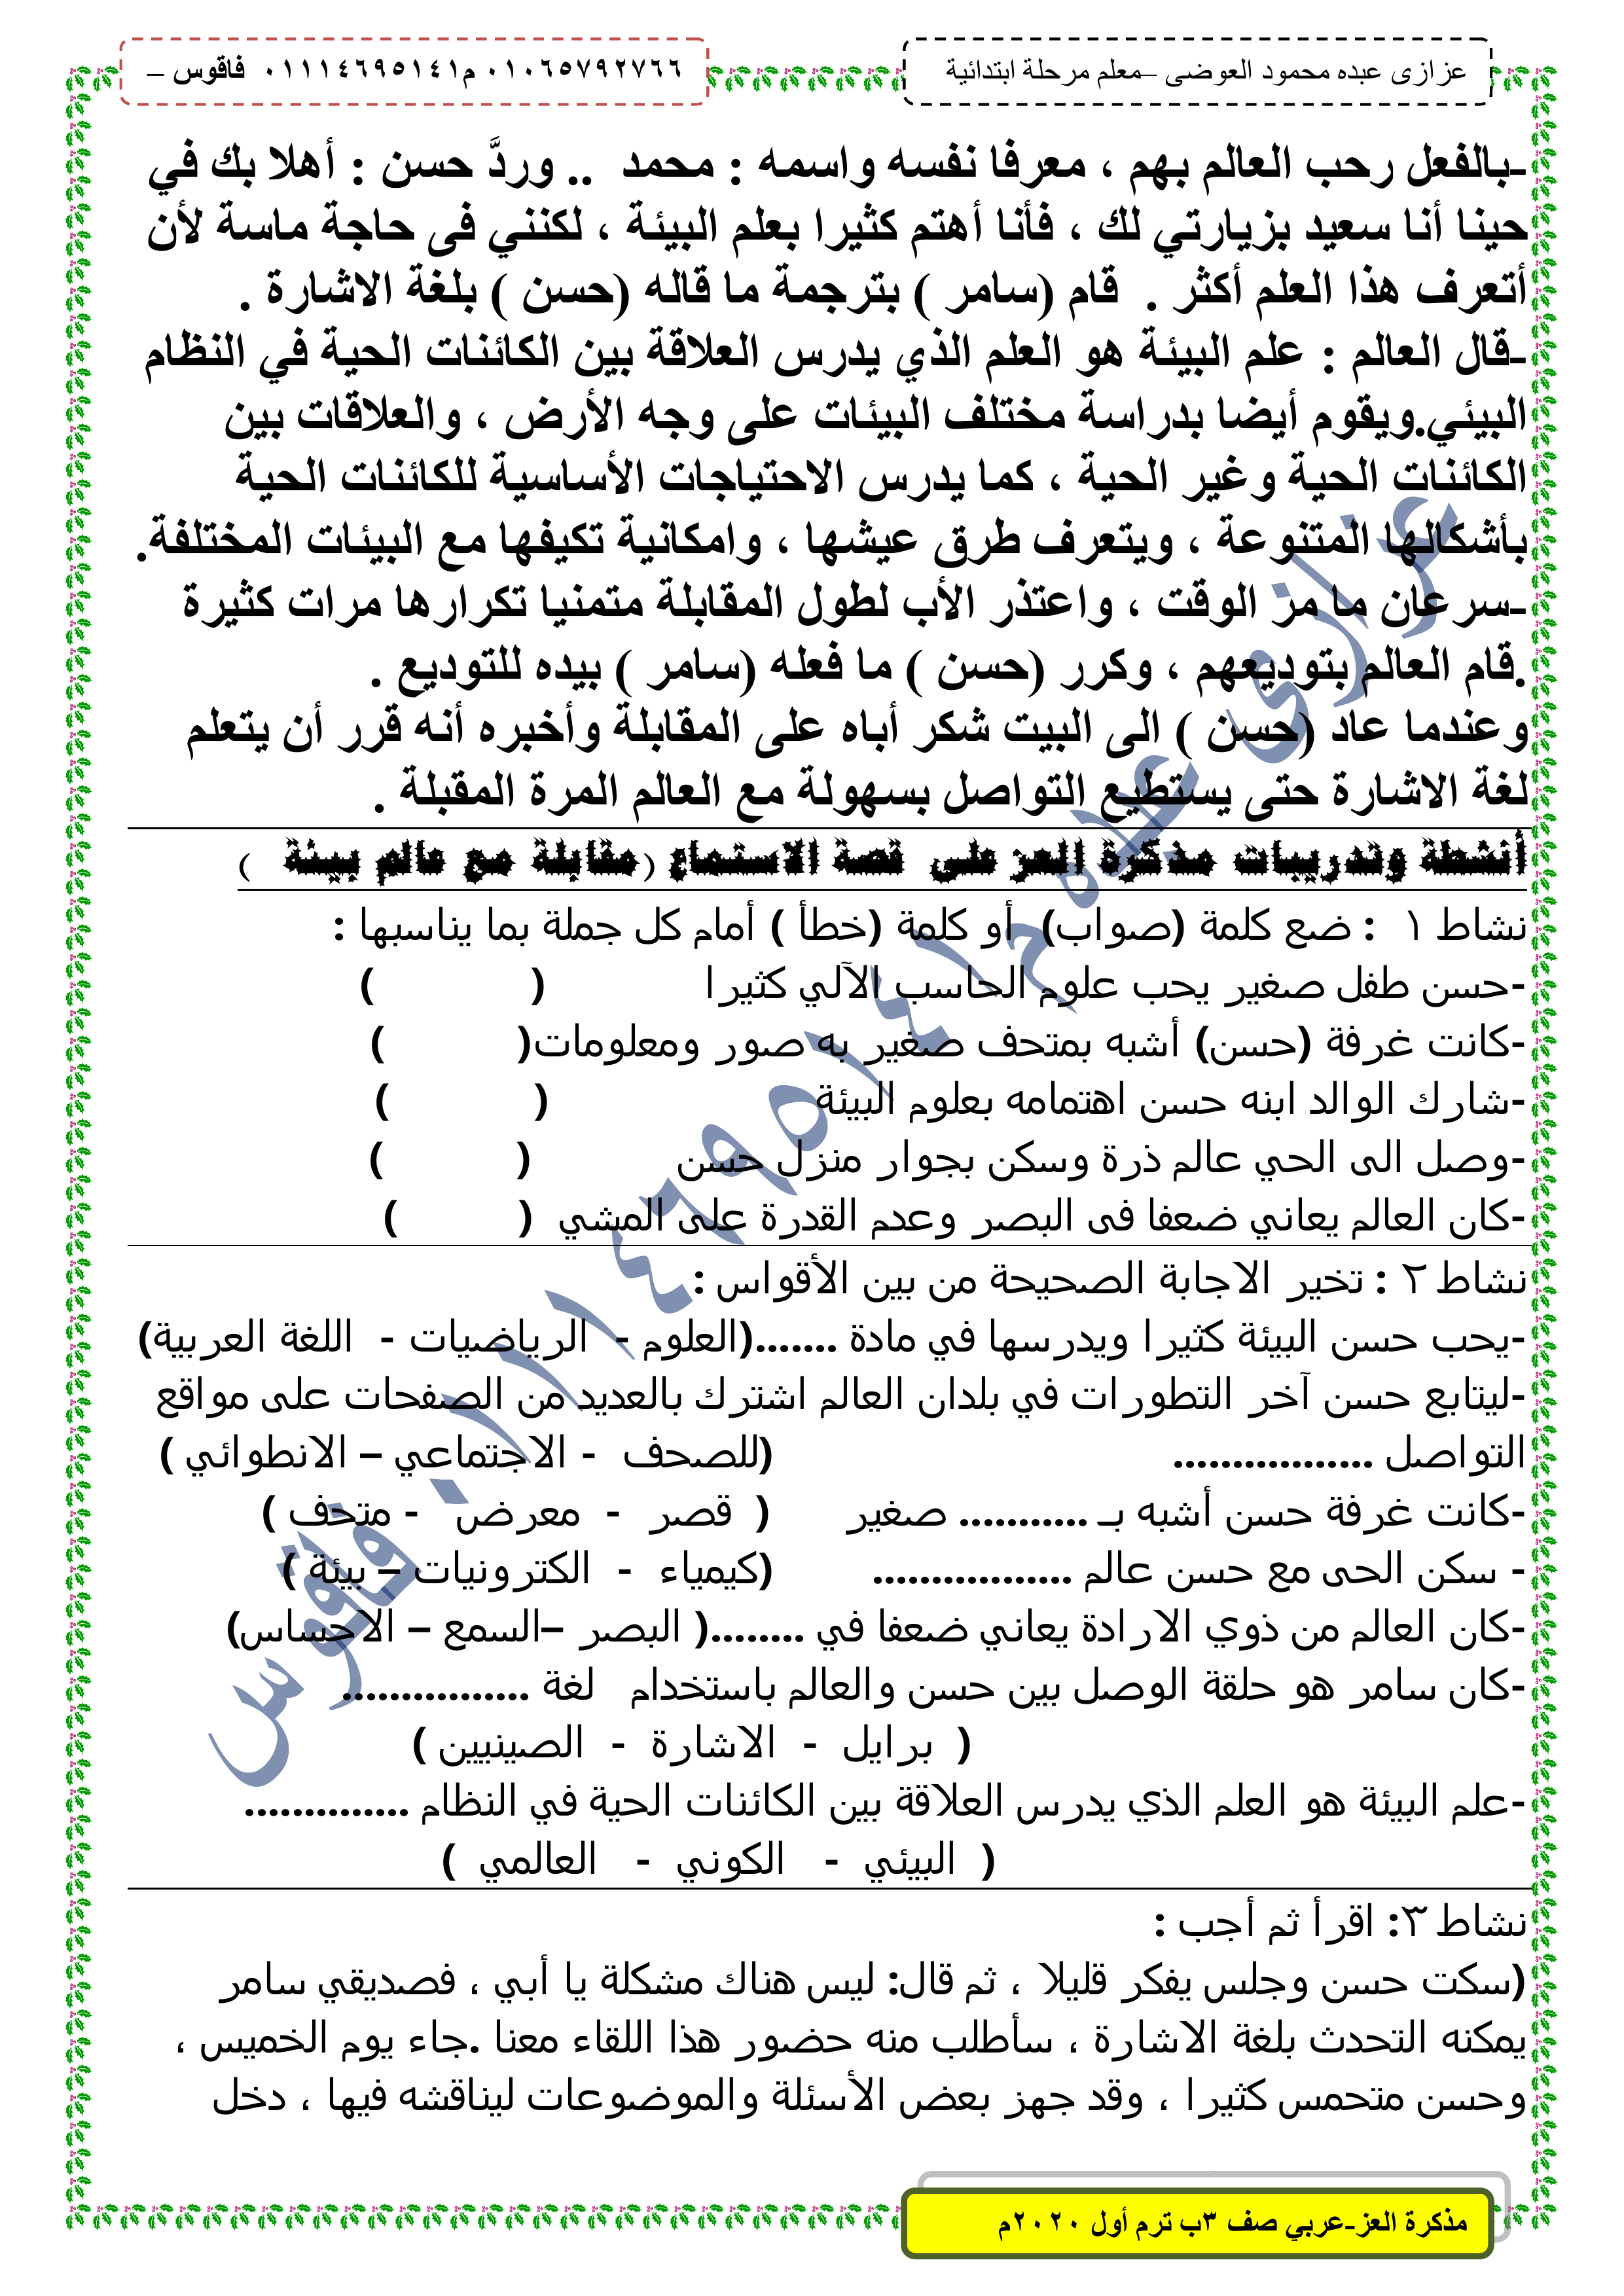 عزازى عبده محمود العوضى –معلم مرحلة ابتدائية
٠١٠٦٥٧٩٢٧٦٦ م٠١١١٤٦٩٥١٤١ فاقوس –
-بالفعل رحب العالم بهم ، معرفا نفسه واسمه : محمد .. وردَّ حسن : أهلا بك في
حينا أنا سعيد بزيارتي لك ، فأنا أهتم كثيرا بعلم البيئة ، لكنني فى حاجة ماسة لأن
أتعرف هذا العلم أكثر . قام (سامر ) بترجمة ما قاله (حسن ) بلغة الاشارة .
-قال العالم : علم البيئة هو العلم الذي يدرس العلاقة بين الكائنات الحية في النظام
البيئي.ويقوم أيضا بدراسة مختلف البيئات على وجه الأرض ، والعلاقات بين
الكائنات الحية وغير الحية ، كما يدرس الاحتياجات الأساسية للكائنات الحية
بأشكالها المتنوعة ، ويتعرف طرق عيشها ، وامكانية تكيفها مع البيئات المختلفة.
-سرعان ما مر الوقت ، واعتذر الأب لطول المقابلة متمنيا تكرارها مرات كثيرة
.قام العالم بتوديعهم ، وكرر (حسن ) ما فعله (سامر ) بيده للتوديع .
وعندما عاد (حسن ) الى البيت شكر أباه على المقابلة وأخبره أنه قرر أن يتعلم
لغة الاشارة حتى يستطيع التواصل بسهولة مع العالم المرة المقبلة .
أنشطة وتدريبات مذكرة العز على قصة الاستماع (مقابلة مع عالم بيئة )
نشاط ١ : ضع كلمة (صواب) أو كلمة (خطأ ) أمام كل جملة بما يناسبها :
-حسن طفل صغير يحب علوم الحاسب الآلي كثيرا ( )
-كانت غرفة (حسن) أشبه بمتحف صغير به صور ومعلومات( )
-شارك الوالد ابنه حسن اهتمامه بعلوم البيئة ( )
-وصل الى الحي عالم ذرة وسكن بجوار منزل حسن ( )
-كان العالم يعاني ضعفا فى البصر وعدم القدرة على المشي ( )
نشاط ٢ : تخير الاجابة الصحيحة من بين الأقواس :
-يحب حسن البيئة كثيرا ويدرسها في مادة .......(العلوم - الرياضيات - اللغة العربية)
-ليتابع حسن آخر التطورات في بلدان العالم اشترك بالعديد من الصفحات على مواقع
التواصل ................. (للصحف - الاجتماعي – الانطوائي )
-كانت غرفة حسن أشبه بـ ........... صغير ( قصر - معرض - متحف )
- سكن الحى مع حسن عالم ................. (كيمياء - الكترونيات – بيئة )
-كان العالم من ذوي الارادة يعاني ضعفا في ........( البصر –السمع – الاحساس)
-كان سامر هو حلقة الوصل بين حسن والعالم باستخدام لغة ................
( برايل - الاشارة - الصينيين )
-علم البيئة هو العلم الذي يدرس العلاقة بين الكائنات الحية في النظام ..............
( البيئي - الكوني - العالمي )
نشاط ٣: اقرأ ثم أجب :
(سكت حسن وجلس يفكر قليلا ، ثم قال: ليس هناك مشكلة يا أبي ، فصديقي سامر
يمكنه التحدث بلغة الاشارة ، سأطلب منه حضور هذا اللقاء معنا .جاء يوم الخميس ،
وحسن متحمس كثيرا ، وقد جهز بعض الأسئلة والموضوعات ليناقشه فيها ، دخل
عزازى عبده م٠١١١٤٦٩٥١٤١ ، فاقوس
مذكرة العز-عربي صف ٣ب ترم أول ٢٠٢٠م